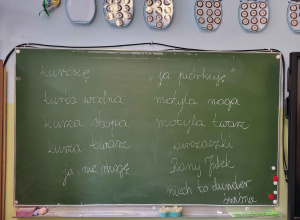 kurczę
kurza wodna
kurza stopa
kurza twarz
ja nie mogę
"ja piórkuję"
motyla noga
motyla twarz
kuroszaczki
Rany Julek
niech to dunder
świśnie